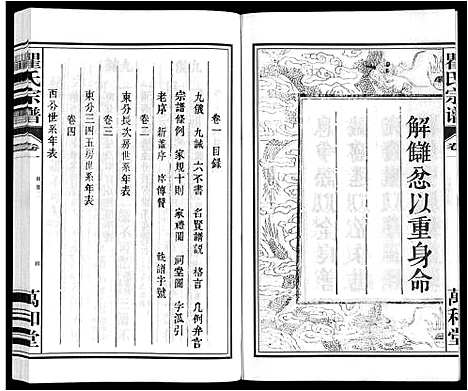 瞿氏宗譜
卷一
萬和堂
解讎忿以重身命
卷一 目錄
九儀 九誡 六不書 名賢譜說 格言 凡例弁言
宗譜條例 家規十則 家禮圖 祠堂圖 字派引
老序 新舊序 序傳贊 姓諸字號
卷二
東分長次房世系年表
卷三
東分三四五房世系年表
卷四
西分世系年表
瞿氏宗譜
卷一
目錄
萬和堂